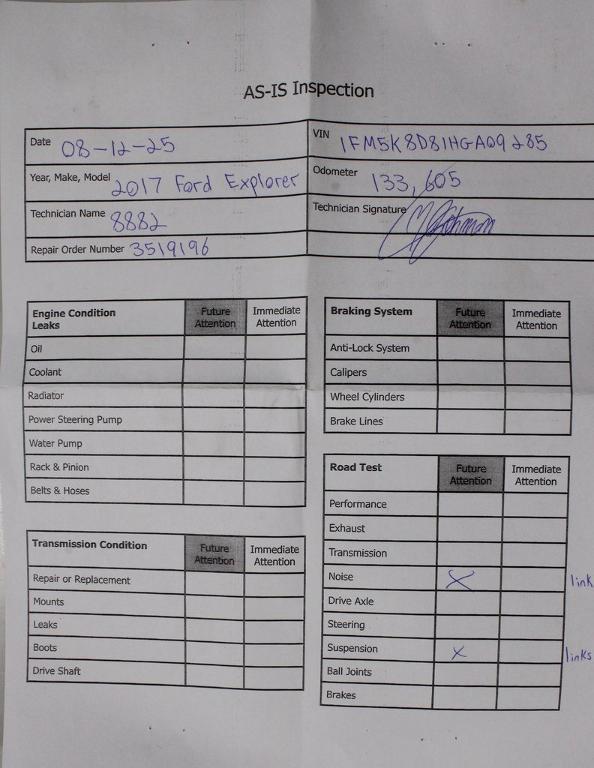 AS-IS Inspection
Date 08-12-25
VIN 1FM5K8D81HGA09285
Year, Make, Model 2017 Ford Explorer
Odometer 133,605
Technician Name 8882
Technician Signature
Repair Order Number 3519196
Engine Condition Leaks Future Attention Immediate Attention
Oil
Coolant
Radiator
Power Steering Pump
Water Pump
Rack & Pinion
Belts & Hoses
Transmission Condition Future Attention Immediate Attention
Repair or Replacement
Mounts
Leaks
Boots
Drive Shaft
Braking System Future Attention Immediate Attention
Anti-Lock System
Calipers
Wheel Cylinders
Brake Lines
Road Test Future Attention Immediate Attention
Performance
Exhaust
Transmission
Noise X link
Drive Axle
Steering
Suspension X links
Ball Joints
Brakes